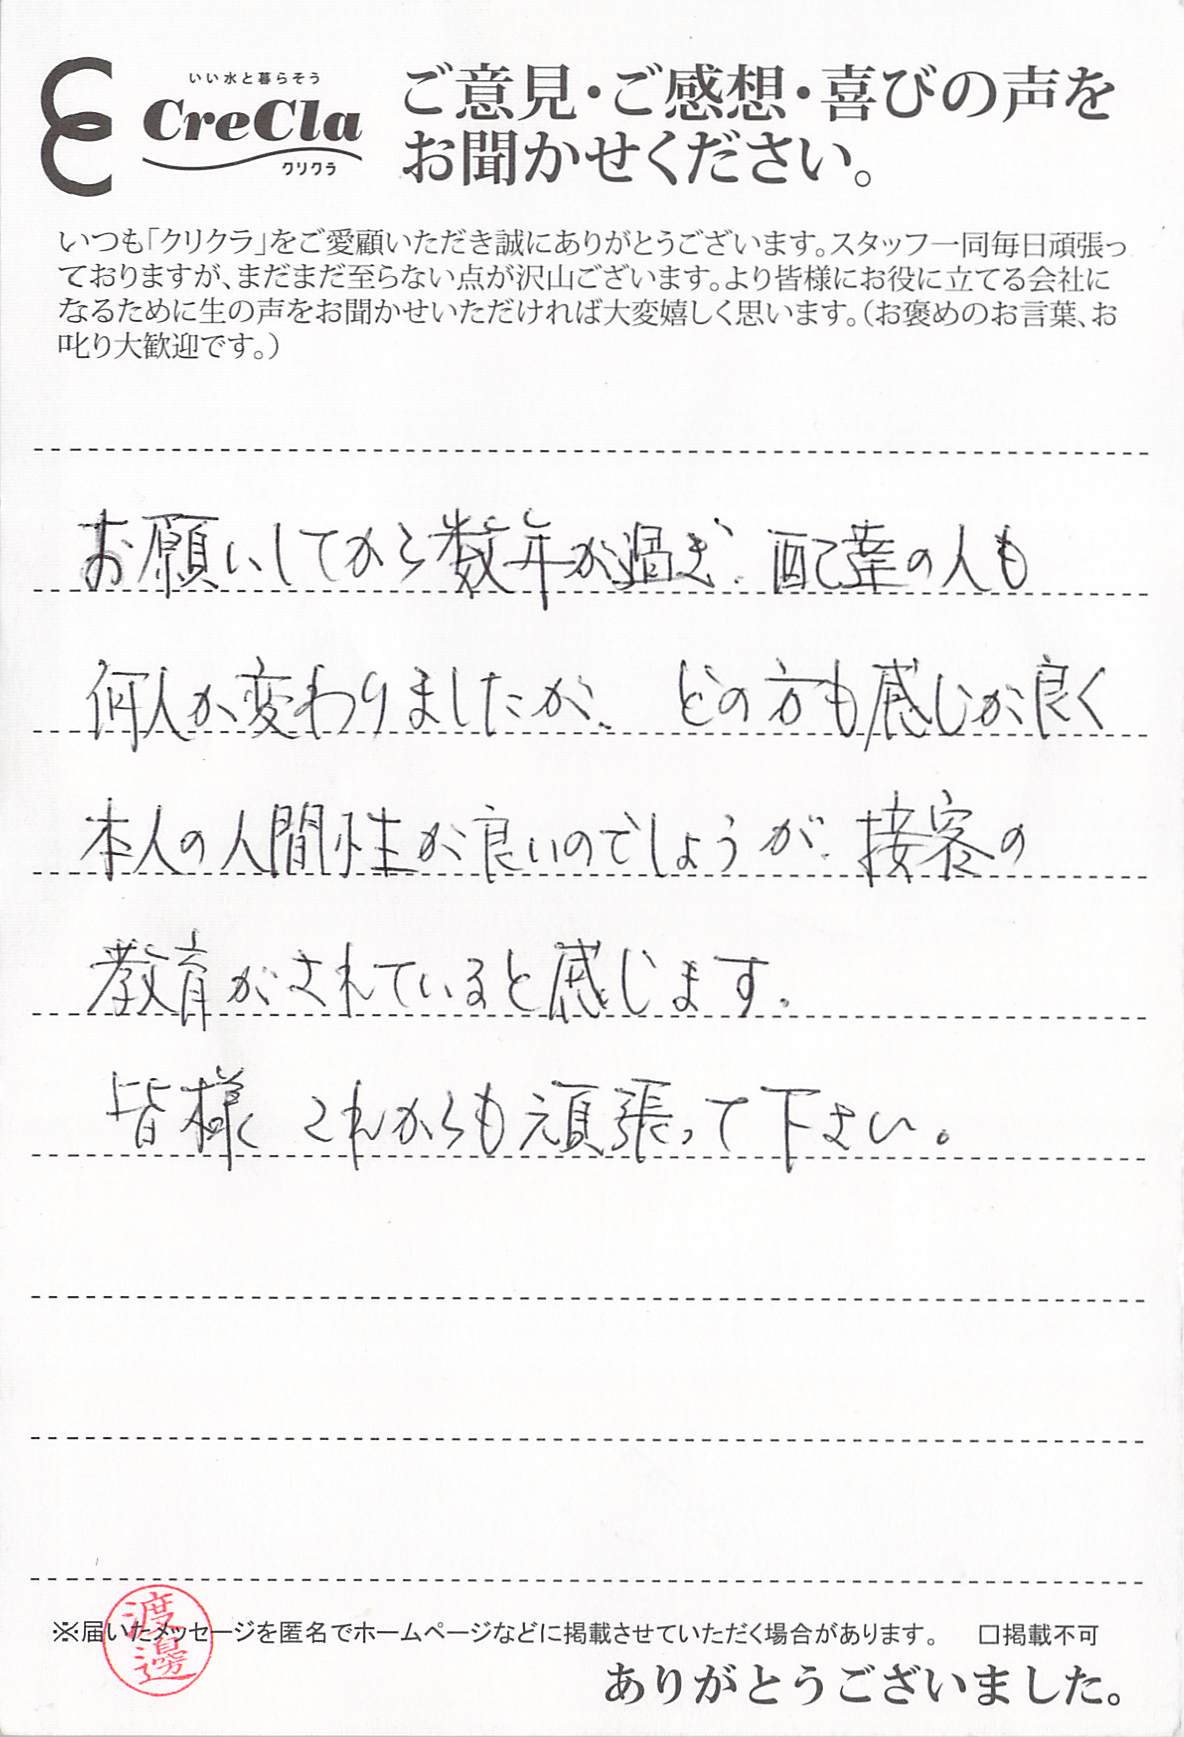 いい水と暮らそう
CreCla
クリクラ
ご意見・ご感想・喜びの声を
お聞かせください。
いつも「クリクラ」をご愛顧いただき誠にありがとうございます。スタッフ一同毎日頑張っ
ておりますが、まだまだ至らない点が沢山ございます。より皆様にお役に立てる会社に
なるために生の声をお聞かせいただければ大変嬉しく思います。（お褒めのお言葉、お
叱り大歓迎です。）
お願いしてから数年が過ぎ、配達の人も
何人か変わりましたが、どの方も感じが良く
本人の人間性が良いのでしょうが、接客の
教育がされていると感じます。
皆様 これからも頑張って下さい。
※届いたメッセージを匿名でホームページなどに掲載させていただく場合があります。 □掲載不可
渡邉
ありがとうございました。